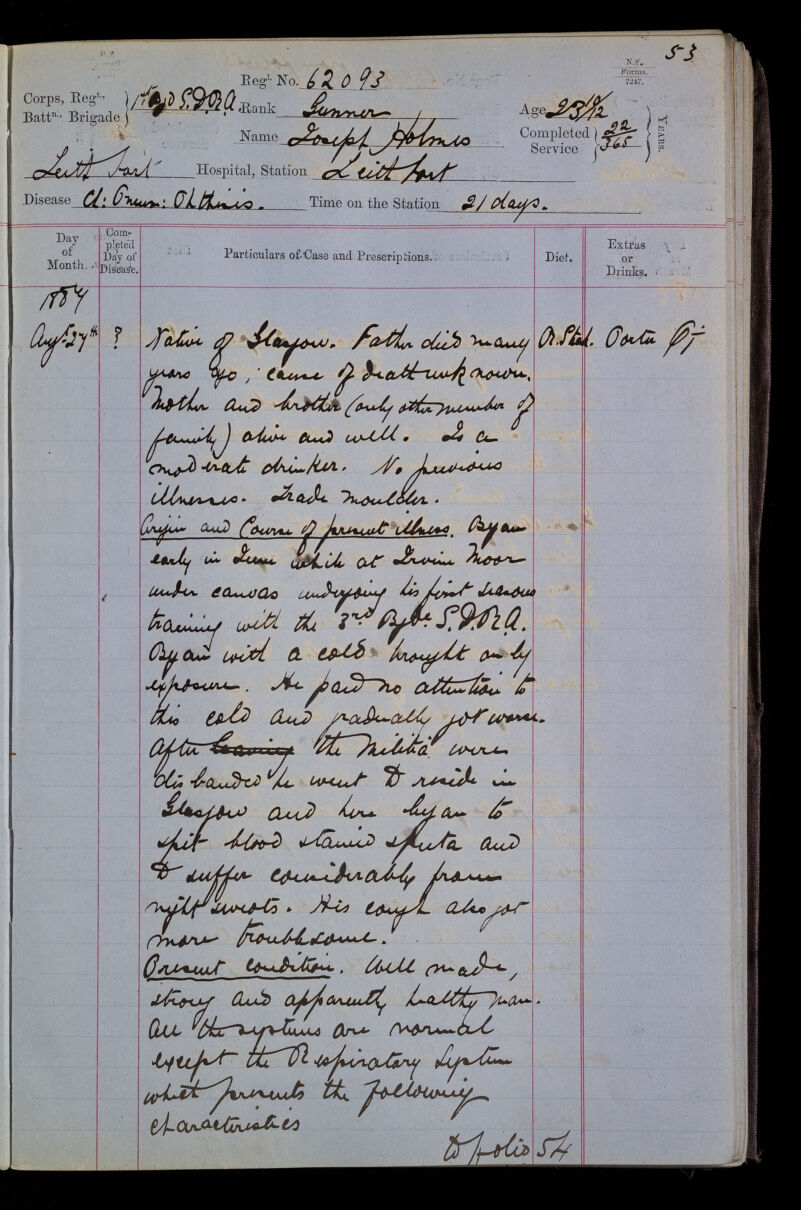 53
N.S.
Forms.
7247.
Regl. No. 62093
Corps, Regt.,
Battn., Brigade S.D.R.A. Rank Gunner Age 23 10/12
Name Joseph Holmes Completed Service 22/365 YEARS.
Leith Fort Hospital, Station Leith Fort
Disease Cl: Pneum: Phthisis. Time on the Station 21 days.
Day of Month. Completed Day of Disease. Particulars of Case and Prescriptions. Diet. Extras or Drinks.
1884
Augst 27th ? Native of Glasgow. Father died many R. Stk. Porter Pt ÷
years ago; cause of death unknown.
Mother and brother (only other member of
family) alive and well. Is a
moderate drinker. No previous
illnesses. Trade Moulder.
Origin and Course of present illness. Began
early in June while at Irvine Moor
under canvas undergoing his first seasons
training with the 3rd Bgde. S.D.R.A.
Began with a cold brought on by
exposure. He paid no attention to
this cold and gradually got worse.
After leaving the Militia were
disbanded he went to reside in
Glasgow and here began to
spit blood stained sputa and
to suffer considerably from
night sweats. His cough also got
more troublesome.
Present condition. Well made,
strong and apparently healthy man.
All the systems are normal
except the Respiratory System
which presents the following
characteristics
to folio 54